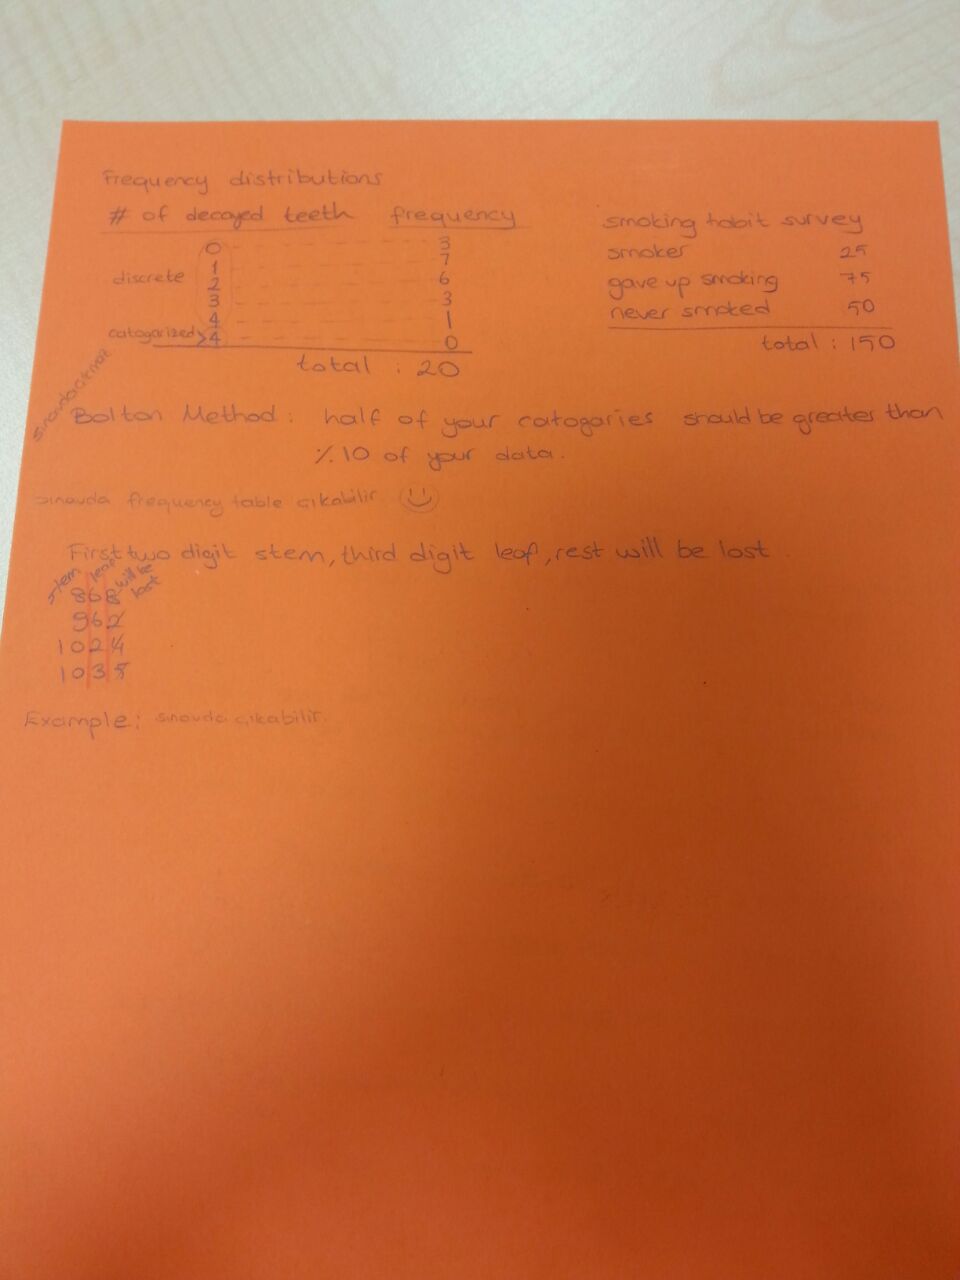 Frequency distributions
# of decayed teeth frequency
0 3
1 7
discrete 2 6
3 3
4 1
catogarized >4 0
total : 20
smoking habit survey
smoker 25
gave up smoking 75
never smoked 50
total : 150
sınavda çıkmaz
Bolton Method : half of your catogaries should be greater than
%10 of your data.
sınavda frequency table çıkabilir
First two digit stem, third digit leaf, rest will be lost.
stem leaf will be lost
86 8
96 2
10 2 4
10 3 5
Example: sınavda çıkabilir.